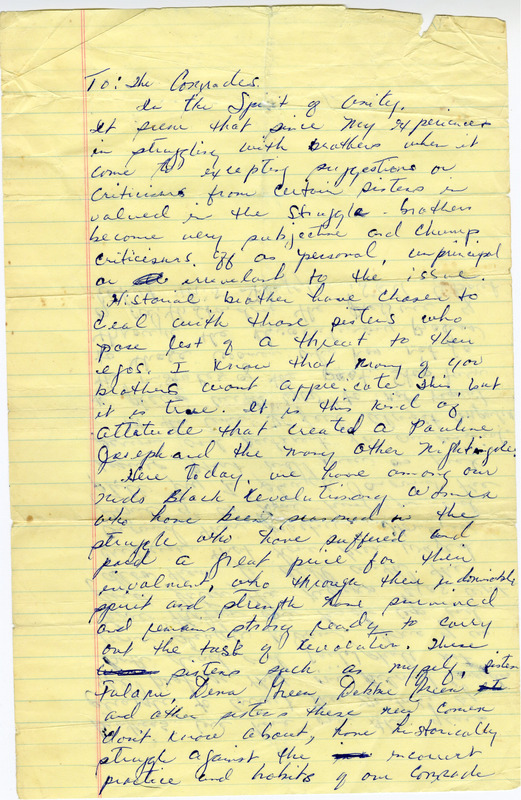 To: The Comrades.
In the Spirit of Unity,
It seem that since my experiences
in struggling with brothers when it
come to excepting suggestions or
criticisms from certain sisters in
valued in the struggle. brothers
become very subjective and chump
criticisms off as personal, unprincipal
or irrevelant to the issue.
Historical brother have chosen to
deal with those sisters who
pose lest of a threat to their
egos. I know that many of you
brothers wont appreicate this, but
it is true. It is this kind of
attatude that created a Pauline
Joseph and the many other Nightingales
Here today, we have among our
mids Black Revolutionary women
who have been seasoned in the
struggle who have suffered and
paid a great price for their
involment, who through their indominable
spirit and strength have survived
and remains strong ready to carry
out the task of Revolution. These
sisters such as myself, sisters
Fulani, Dena Green, Debbie Green
and other sisters these new comers
don't know about, have historically
struggle against the incorrect
practice and habits of our Comrade